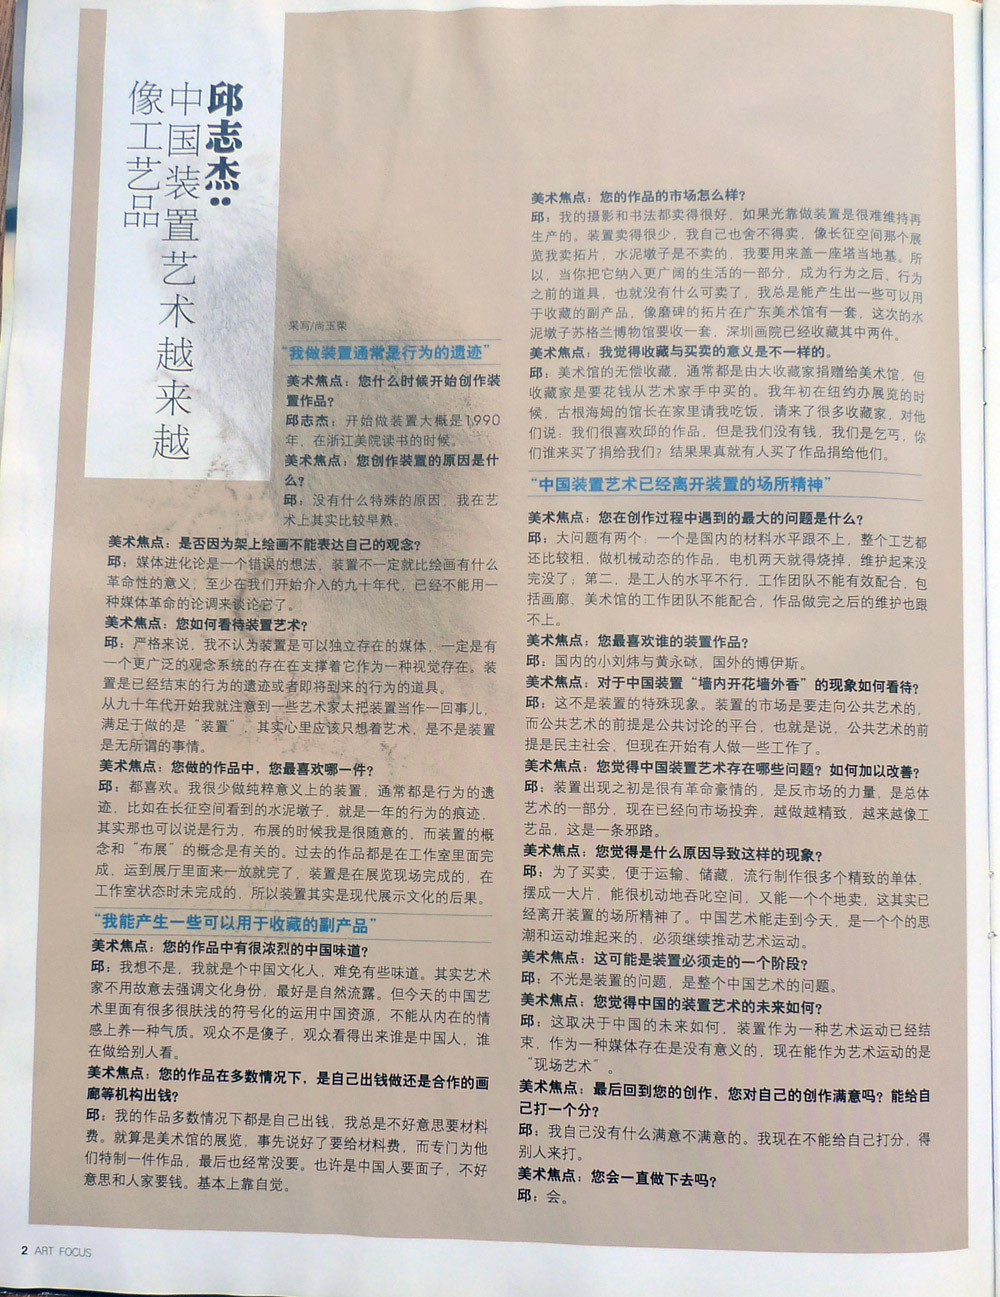 邱志杰：
中国装置艺术越来越
像工艺品
采写/尚玉荣
“我做装置通常是行为的遗迹”
美术焦点：您什么时候开始创作装
置作品？
邱志杰：开始做装置大概是1990
年，在浙江美院读书的时候。
美术焦点：您创作装置的原因是什
么？
邱：没有什么特殊的原因，我在艺
术上其实比较早熟。
美术焦点：是否因为架上绘画不能表达自己的观念？
邱：媒体进化论是一个错误的想法，装置不一定就比绘画有什么
革命性的意义，至少在我们开始介入的九十年代，已经不能用一
种媒体革命的论调来谈论它了。
美术焦点：您如何看待装置艺术？
邱：严格来说，我不认为装置是可以独立存在的媒体，一定是有
一个更广泛的观念系统的存在在支撑着它作为一种视觉存在。装
置是已经结束的行为的遗迹或者即将到来的行为的道具。
从九十年代开始我就注意到一些艺术家太把装置当作一回事儿，
满足于做的是“装置”，其实心里应该只想着艺术，是不是装置
是无所谓的事情。
美术焦点：您做的作品中，您最喜欢哪一件？
邱：都喜欢。我很少做纯粹意义上的装置，通常都是行为的遗
迹，比如在长征空间看到的水泥墩子，就是一年的行为的痕迹，
其实那也可以说是行为，布展的时候我是很随意的，而装置的概
念和“布展”的概念是有关的。过去的作品都是在工作室里面完
成，运到展厅里面来一放就完了，装置是在展览现场完成的，在
工作室状态时未完成的，所以装置其实是现代展示文化的后果。
“我能产生一些可以用于收藏的副产品”
美术焦点：您的作品中有很浓烈的中国味道？
邱：我想不是，我就是个中国文化人，难免有些味道。其实艺术
家不用故意去强调文化身份，最好是自然流露。但今天的中国艺
术里面有很多很肤浅的符号化的运用中国资源，不能从内在的情
感上养一种气质。观众不是傻子，观众看得出来谁是中国人，谁
在做给别人看。
美术焦点：您的作品在多数情况下，是自己出钱做还是合作的画
廊等机构出钱？
邱：我的作品多数情况下都是自己出钱，我总是不好意思要材料
费。就算是美术馆的展览，事先说好了要给材料费，而专门为他
们特制一件作品，最后也经常没要。也许是中国人要面子，不好
意思和人家要钱。基本上靠自觉。
美术焦点：您的作品的市场怎么样？
邱：我的摄影和书法都卖得很好，如果光靠做装置是很难维持再
生产的。装置卖得很少，我自己也舍不得卖，像长征空间那个展
览我卖拓片，水泥墩子是不卖的，我要用来盖一座塔当地基。所
以，当你把它纳入更广阔的生活的一部分，成为行为之后、行为
之前的道具，也就没有什么可卖了，我总是能产生出一些可以用
于收藏的副产品，像磨碑的拓片在广东美术馆有一套，这次的水
泥墩子苏格兰博物馆要收一套，深圳画院已经收藏其中两件。
美术焦点：我觉得收藏与买卖的意义是不一样的。
邱：美术馆的无偿收藏，通常都是由大收藏家捐赠给美术馆，但
收藏家是要花钱从艺术家手中买的。我年初在纽约办展览的时
候，古根海姆的馆长在家里请我吃饭，请来了很多收藏家，对他
们说：我们很喜欢邱的作品，但是我们没有钱，我们是乞丐，你
们谁来买了捐给我们？结果果真就有人买了作品捐给他们。
“中国装置艺术已经离开装置的场所精神”
美术焦点：您在创作过程中遇到的最大的问题是什么？
邱：大问题有两个：一个是国内的材料水平跟不上，整个工艺都
还比较粗，做机械动态的作品，电机两天就得烧掉，维护起来没
完没了；第二，是工人的水平不行，工作团队不能有效配合，包
括画廊、美术馆的工作团队不能配合，作品做完之后的维护也跟
不上。
美术焦点：您最喜欢谁的装置作品？
邱：国内的小刘炜与黄永砯，国外的博伊斯。
美术焦点：对于中国装置“墙内开花墙外香”的现象如何看待？
邱：这不是装置的特殊现象。装置的市场是要走向公共艺术的，
而公共艺术的前提是公共讨论的平台，也就是说，公共艺术的前
提是民主社会，但现在开始有人做一些工作了。
美术焦点：您觉得中国装置艺术存在哪些问题？如何加以改善？
邱：装置出现之初是很有革命豪情的，是反市场的力量，是总体
艺术的一部分，现在已经向市场投奔，越做越精致，越来越像工
艺品，这是一条邪路。
美术焦点：您觉得是什么原因导致这样的现象？
邱：为了买卖，便于运输、储藏，流行制作很多个精致的单体，
摆成一大片，能很机动地吞吃空间，又能一个个地卖，这其实已
经离开装置的场所精神了。中国艺术能走到今天，是一个个的思
潮和运动堆起来的，必须继续推动艺术运动。
美术焦点：这可能是装置必须走的一个阶段？
邱：不光是装置的问题，是整个中国艺术的问题。
美术焦点：您觉得中国的装置艺术的未来如何？
邱：这取决于中国的未来如何，装置作为一种艺术运动已经结
束，作为一种媒体存在是没有意义的，现在能作为艺术运动的是
“现场艺术”。
美术焦点：最后回到您的创作，您对自己的创作满意吗？能给自
己打一个分？
邱：我自己没有什么满意不满意的。我现在不能给自己打分，得
别人来打。
美术焦点：您会一直做下去吗？
邱：会。
2 ART FOCUS